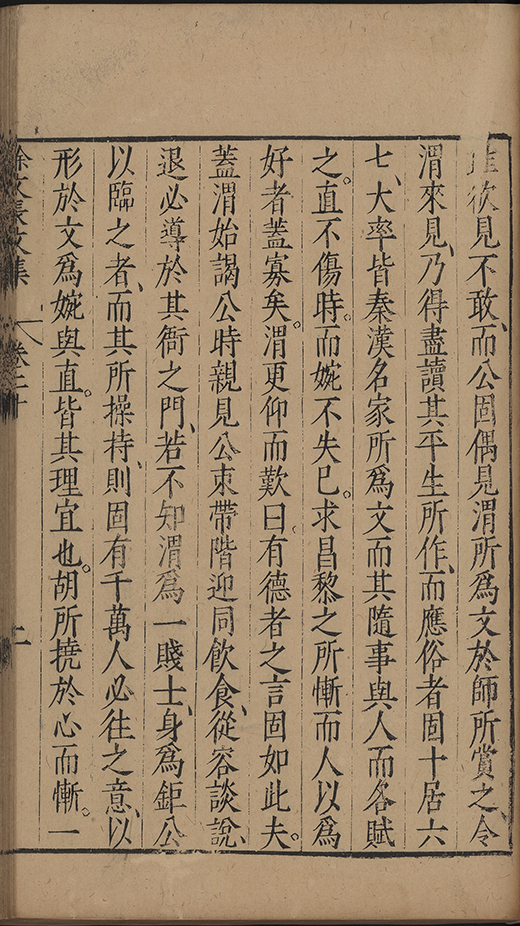 欲見不敢、而公固偶見渭所爲文於師所賞之、令
渭來見、乃得盡讀其平生所作、而應俗者固十居六
七、大率皆秦漢名家所爲文而其隨事與人而各賦
之。直不傷時。而婉不失已。求昌黎之所慚而人以爲
好者蓋寡矣。渭更仰而歎曰。有德者之言固如此夫。
蓋渭始謁公時親見公束帶階迎同飲食、從容談說、
退必導於其衙之門、若不知渭爲一賤士、身爲鉅公
以臨之者、而其所操持、則固有千萬人必往之意、以
形於文爲婉與直。皆其理宜也。胡所撓於心而慚。一
徐文長文集 卷二十 二